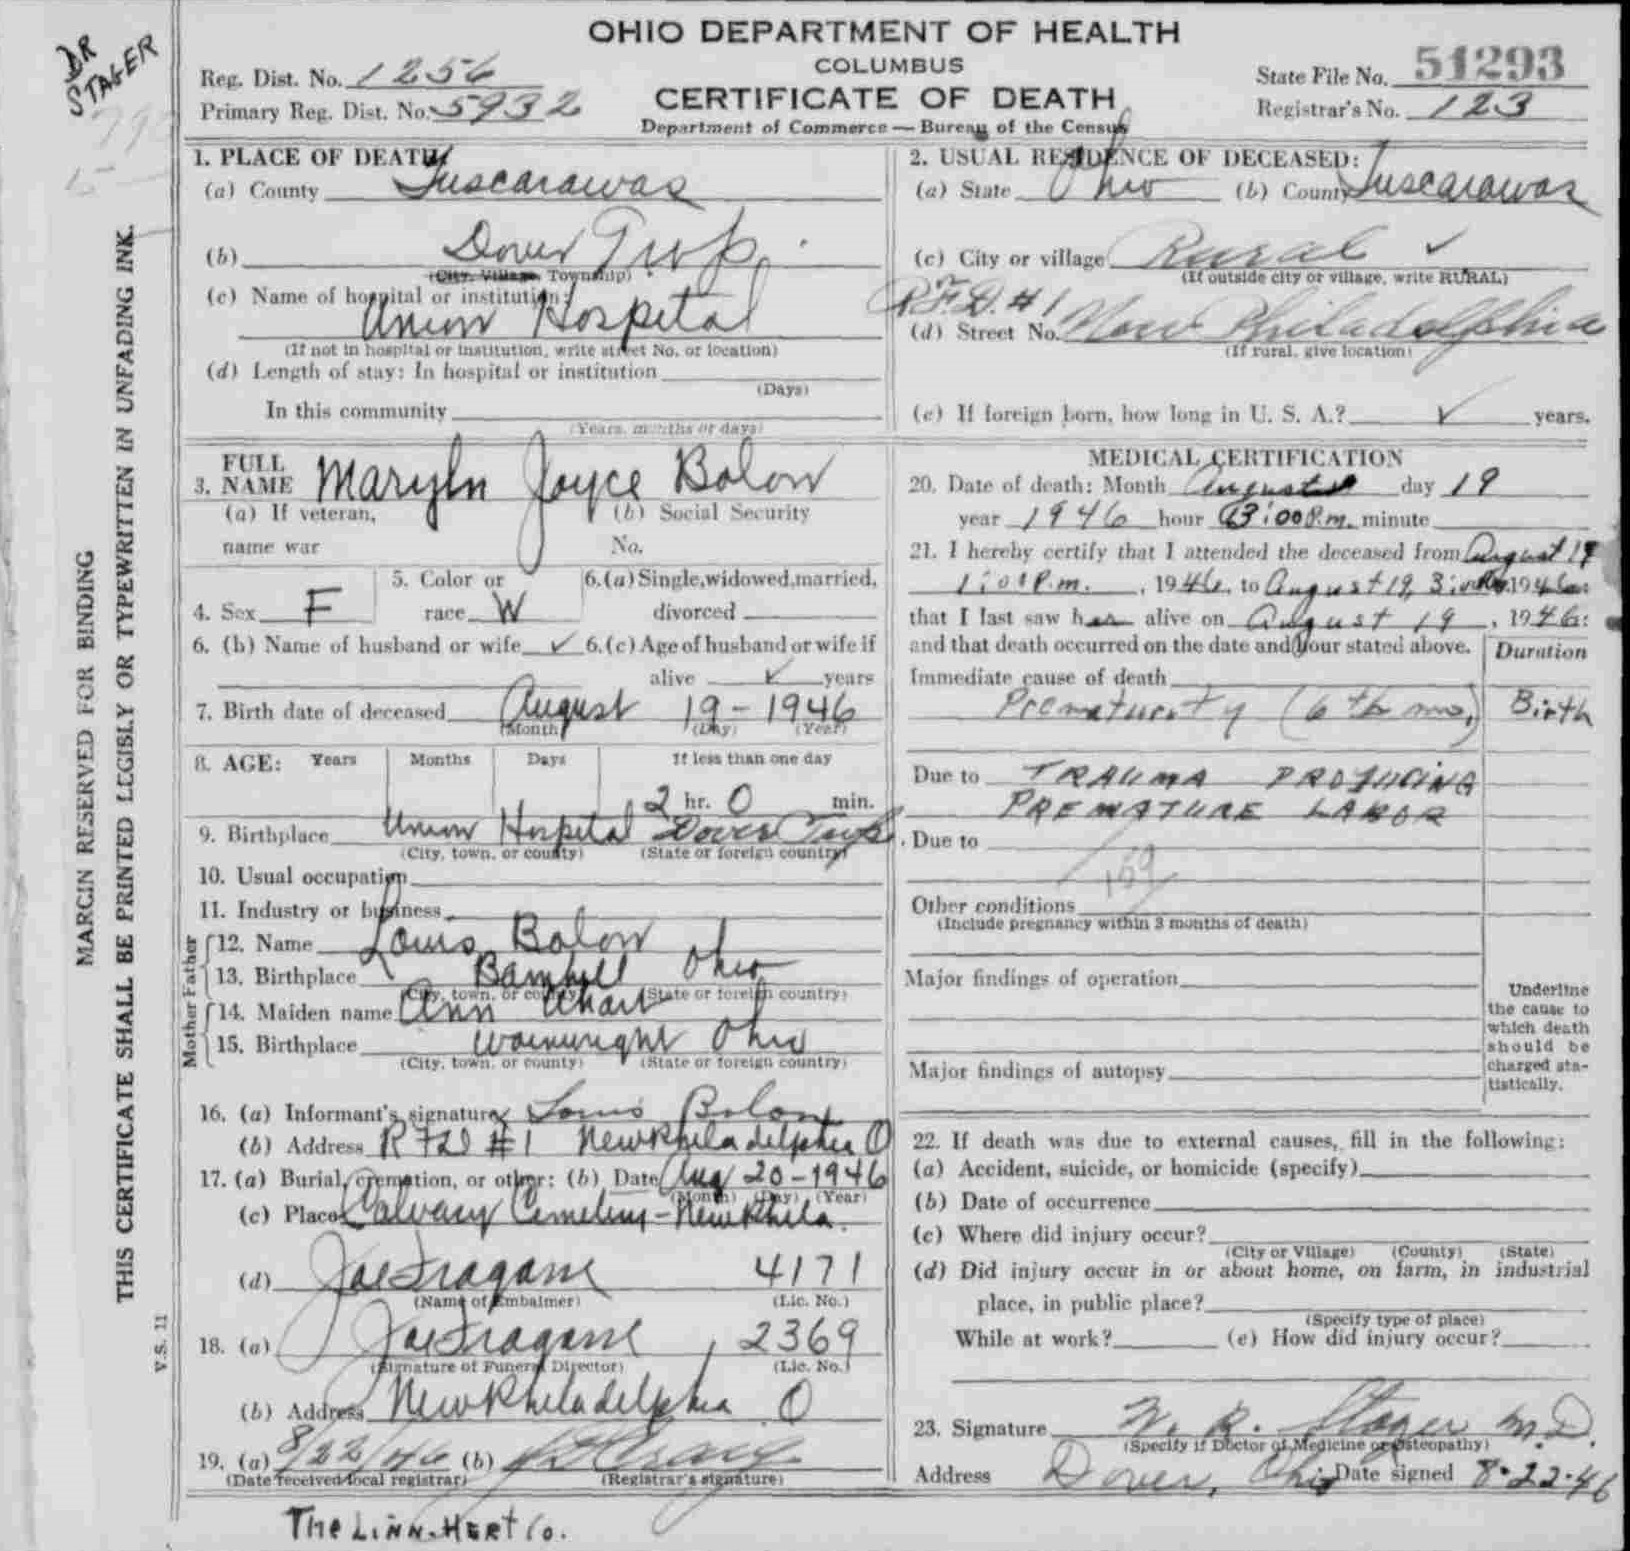 DR
STAGER
OHIO DEPARTMENT OF HEALTH
COLUMBUS
CERTIFICATE OF DEATH
Department of Commerce — Bureau of the Census
Reg. Dist. No. 1256
Primary Reg. Dist. No. 5932
State File No. 51293
Registrar's No. 123
MARGIN RESERVED FOR BINDING
THIS CERTIFICATE SHALL BE PRINTED LEGISLY OR TYPEWRITTEN IN UNFADING INK.
V.S. 11
1. PLACE OF DEATH
(a) County Tuscarawas
(b) Dover Twp.
(City, Village, Township)
(c) Name of hospital or institution:
Union Hospital
(If not in hospital or institution, write street No. or location)
(d) Length of stay: In hospital or institution
(Days)
In this community
(Years, months or days)
2. USUAL RESIDENCE OF DECEASED:
(a) State Ohio (b) County Tuscarawas
(c) City or village Rural ✓
(If outside city or village, write RURAL)
R.F.D. #1
(d) Street No. New Philadelphia
(If rural, give location)
(e) If foreign born, how long in U. S. A.? ✓ years.
3. FULL NAME Maryln Joyce Bolon
(a) If veteran, name war
(b) Social Security No.
4. Sex F
5. Color or race W
6. (a) Single, widowed, married, divorced
6. (b) Name of husband or wife ✓ 6. (c) Age of husband or wife if
alive ✓ years
7. Birth date of deceased August 19 - 1946
(Month) (Day) (Year)
8. AGE: Years Months Days If less than one day
2 hr. 0 min.
9. Birthplace Union Hospital Dover Twp
(City, town, or county) (State or foreign country)
10. Usual occupation
11. Industry or business
Father
12. Name Louis Bolon
13. Birthplace Barnhill Ohio
(City, town, or county) (State or foreign country)
Mother
14. Maiden name Ann
15. Birthplace Wainwright Ohio
(City, town, or county) (State or foreign country)
16. (a) Informant's signature Louis Bolon
(b) Address R F D #1 New Philadelphia O
17. (a) Burial, cremation, or other: (b) Date Aug 20-1946
(Month) (Day) (Year)
(c) Place Calvary Cemetery - New Phila.
(d) Joe Fragasse 4171
(Name of Embalmer) (Lic. No.)
18. (a) Joe Fragasse, 2369
(Signature of Funeral Director) (Lic. No.)
(b) Address New Philadelphia O
19. (a) 8/22/46 (b)
(Date received local registrar) (Registrar's signature)
MEDICAL CERTIFICATION
20. Date of death: Month August day 19
year 1946 hour 3:00 P.m. minute
21. I hereby certify that I attended the deceased from August 19
1:00 P.m., 1946, to August 19, 3:00 1946
that I last saw her alive on August 19, 1946:
and that death occurred on the date and hour stated above.
Duration
Immediate cause of death
Prematurity (6th mo.) Birth
Due to TRAUMA PRODUCING
PREMATURE LABOR
Due to
159
Other conditions
(Include pregnancy within 3 months of death)
Major findings of operation
Major findings of autopsy
Underline the cause to which death should be charged statistically.
22. If death was due to external causes, fill in the following:
(a) Accident, suicide, or homicide (specify)
(b) Date of occurrence
(c) Where did injury occur?
(City or Village) (County) (State)
(d) Did injury occur in or about home, on farm, in industrial
place, in public place?
(Specify type of place)
While at work? (e) How did injury occur?
23. Signature W. R. Stager M.D.
(Specify if Doctor of Medicine or Osteopathy)
Address Dover, Ohio Date signed 8-22-46
The Linn-Hert Co.